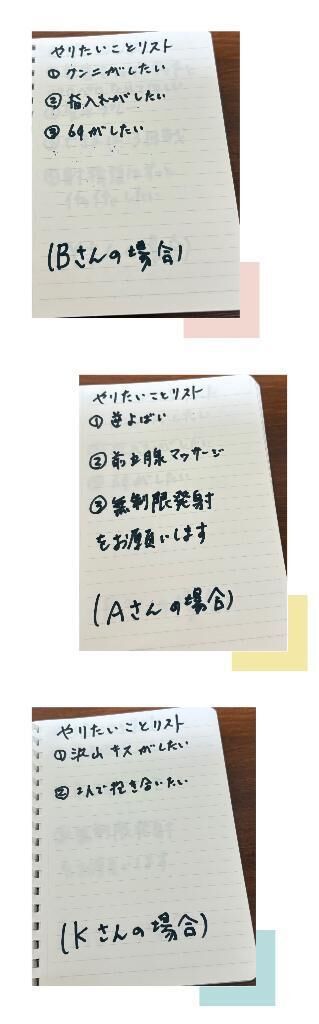 やりたいことリスト
① クンニがしたい
② 指入れがしたい
③ 69がしたい
(Bさんの場合)
やりたいことリスト
① 逆よばい
② 前立腺マッサージ
③ 無制限発射
をお願いします
(Aさんの場合)
やりたいことリスト
① 沢山キスがしたい
② 2人で抱き合いたい
(Kさんの場合)